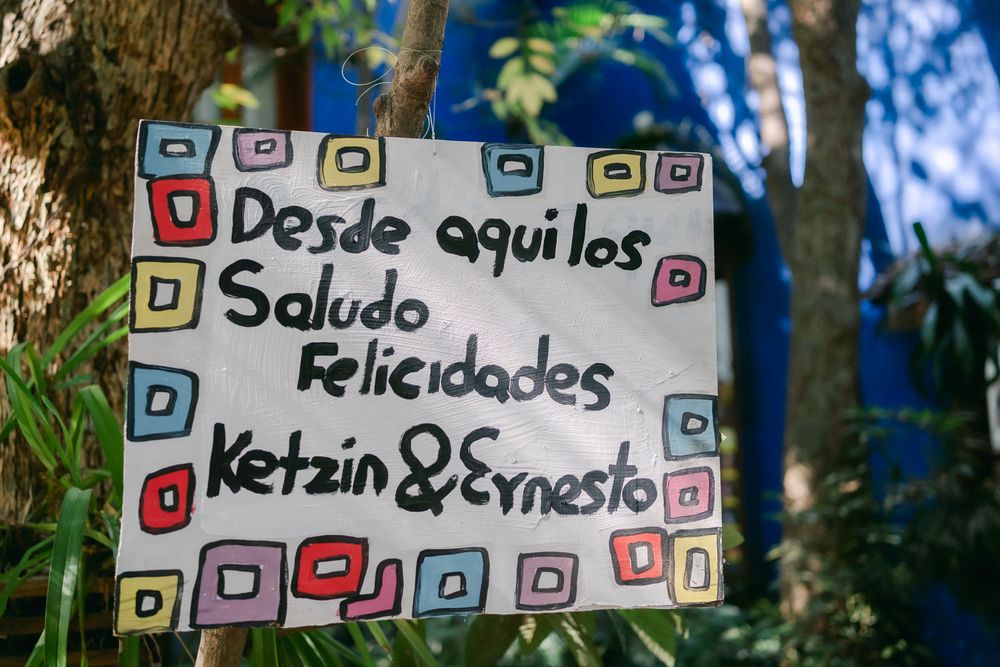 Desde aqui los
Saludo
Felicidades
Ketzin & Ernesto